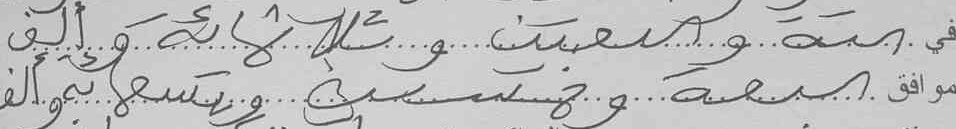 في ستة و سبعين و ثلاثمائة و ألف
موافق سبعة و خمسين و تسعمائة و ألف